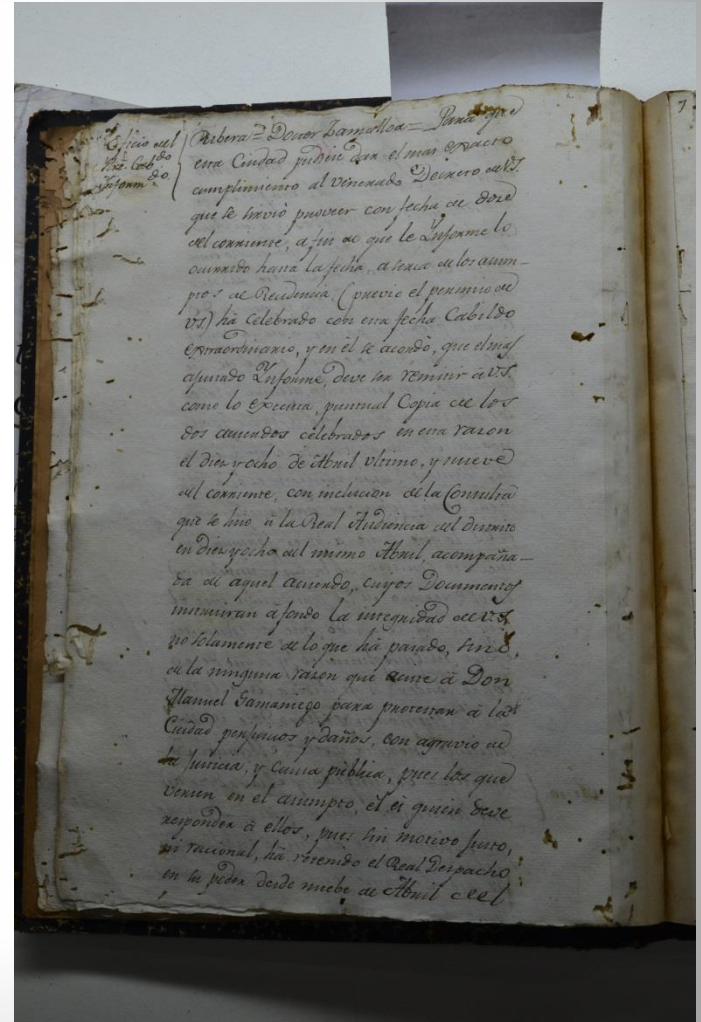 Oficio del
Cab.do
Inform.do
Ribera = Doctor Zamalloa = Para que
esta Ciudad puede dar el mas exacto
cumplimiento al venerado Decreto de VS.
que se sirvió proveer con fecha de dose
del corriente, a fin de que le Informe lo
ocurrido hasta la fecha, aserca de los asum-
ptos de Residencia, (previo el permiso de
VS) há celebrado con esta fecha Cabildo
extraordinario, y en él se acordó, que el mas
Informe, deve ser remitir á VS.
como lo executa, puntual Copia de los
dos acuerdos celebrados en esta razon
el diez y ocho de Abril ultimo, y nueve
del corriente, con inclucion de la Consulta
que se hiso á la Real Audiencia del distrito
en diez y ocho del mismo Abril, acompaña-
da de aquel acuerdo, cuyos Documentos
instruiran á fondo la integridad de VS,
no solamente de lo que há pasado, sino,
de la ninguna razon que á Don
Manuel Samaniego para protestar á la
Ciudad perjuicios y daños, con agravio de
la Justicia, y Causa pública, pues los que
en el asumpto, él es quien deve
responder á ellos, pues sin motivo justo,
ni racional, há retenido el Real Despacho
en su poder desde nuebe de Abril del
7